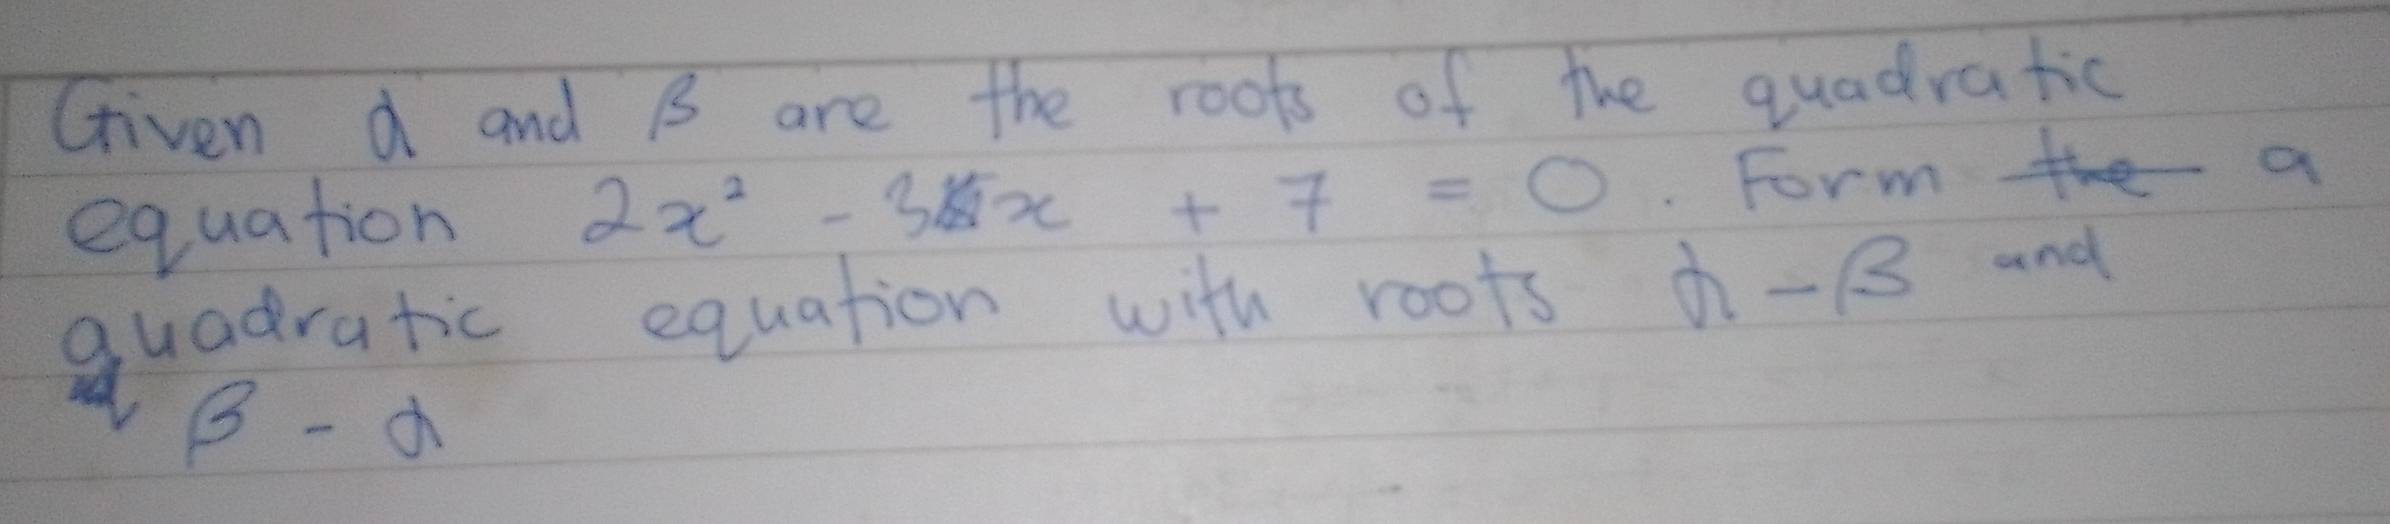 Given α and β are the roots of the quadratic
equation 2x² - 3x + 7 = 0. Form the a
quadratic equation with roots α - β and
β - α